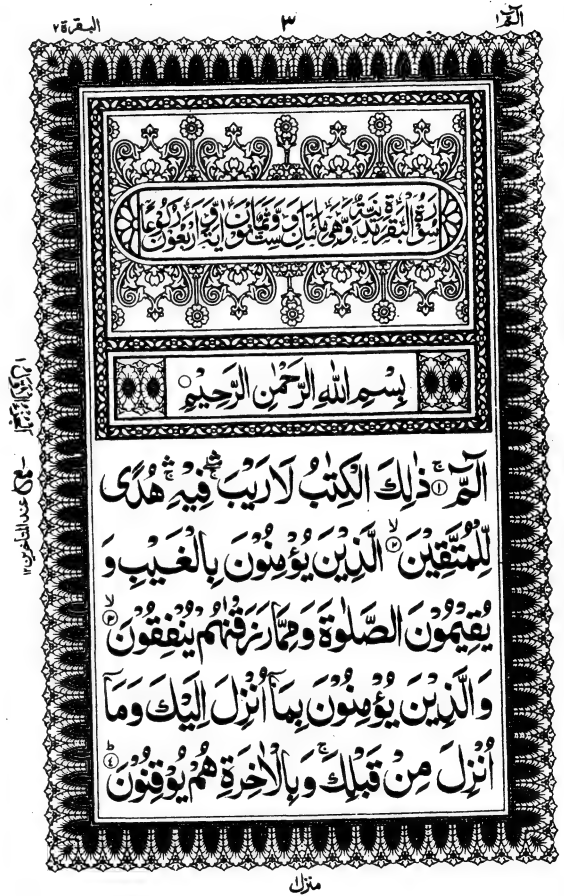 الٓمّٓ ١
٣
البقرة ٢
سُوْرَةُ الْبَقَرَةِ مَدَنِيَّةٌ وَّهِيَ مِائَتَانِ وَسِتٌّ وَّثَمَانُوْنَ اٰيَةً وَّاَرْبَعُوْنَ رُكُوْعًا
بِسْمِ اللهِ الرَّحْمٰنِ الرَّحِيْمِ ○
الٓمّٓ ۚ﴿١﴾ ذٰلِكَ الْكِتٰبُ لَا رَيْبَ ۛۚ فِيْهِ ۛۚ هُدًى
لِّلْمُتَّقِيْنَ ۙ﴿٢﴾ الَّذِيْنَ يُؤْمِنُوْنَ بِالْغَيْبِ وَ
يُقِيْمُوْنَ الصَّلٰوةَ وَمِمَّا رَزَقْنٰهُمْ يُنْفِقُوْنَ ۙ﴿٣﴾
وَالَّذِيْنَ يُؤْمِنُوْنَ بِمَاۤ اُنْزِلَ اِلَيْكَ وَمَاۤ
اُنْزِلَ مِنْ قَبْلِكَ ۚ وَبِالْاٰخِرَةِ هُمْ يُوْقِنُوْنَ ؕ﴿٤﴾
عند المتاخرين ١٢
منزل ١